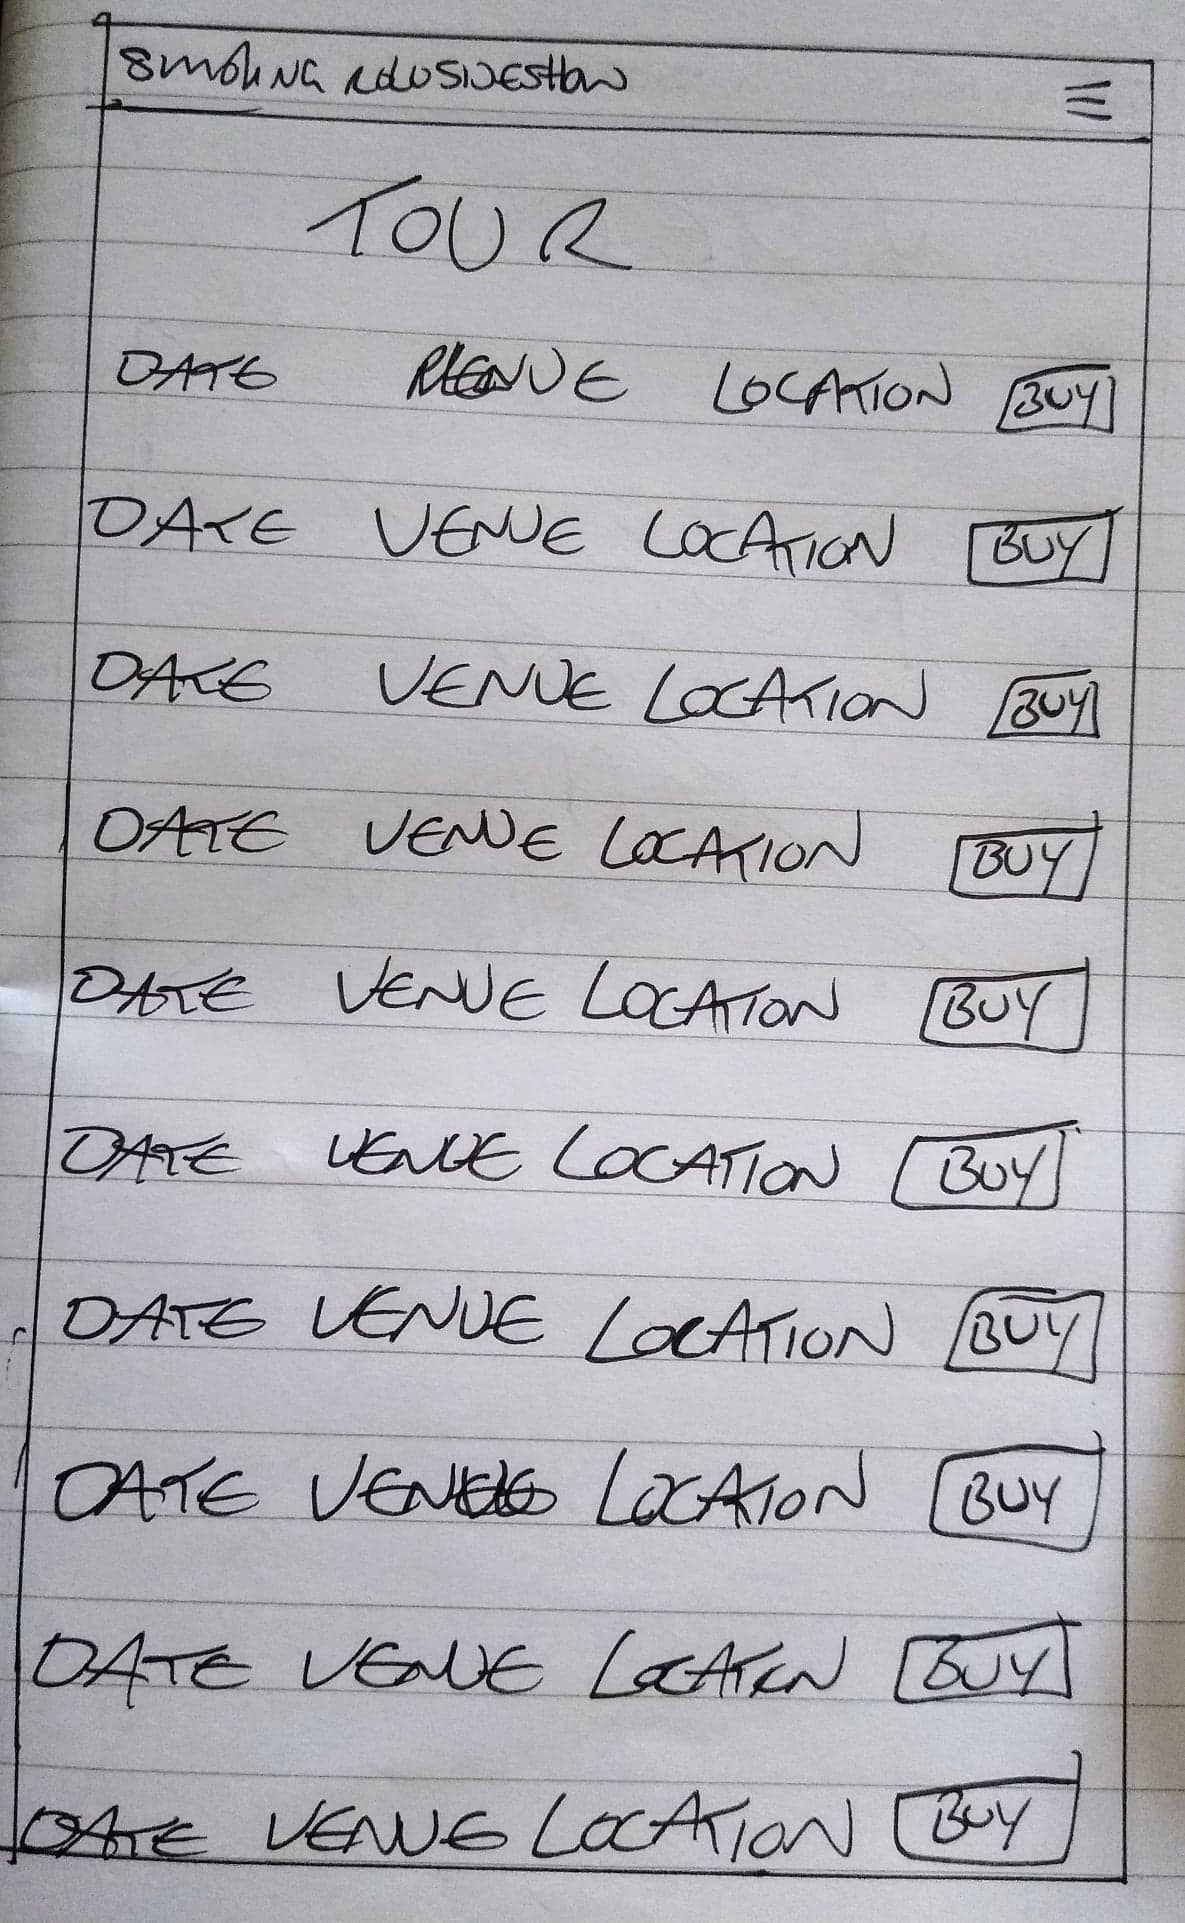 SMOKING
TOUR
DATE VENUE LOCATION BUY
DATE VENUE LOCATION BUY
DATE VENUE LOCATION BUY
DATE VENUE LOCATION BUY
DATE VENUE LOCATION BUY
DATE VENUE LOCATION BUY
DATE VENUE LOCATION BUY
DATE VENUE LOCATION BUY
DATE VENUE LOCATION BUY
DATE VENUE LOCATION BUY